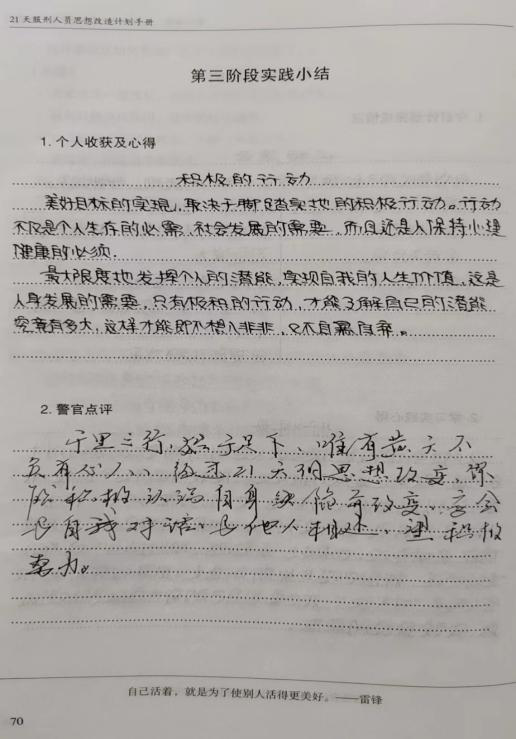 21天服刑人员思想改造计划手册
第三阶段实践小结
1. 个人收获及心得
积极的行动
美好目标的实现,取决于脚踏实地的积极行动。行动
不仅是个人生存的必需,社会发展的需要,而且还是人保持心理
健康的必须.
最大限度地发挥个人的潜能,实现自我的人生价值,这是
人身发展的需要,只有极积的行动,才能了解自己的潜能
究竟有多大,这样才能即不想入非非,又不自暴自弃。
2. 警官点评
千里之行,始于足下、唯有苍天不
负有心人、经过21天的思想改变,
能积极认识自身缺陷并改变,学会
与自我对话、与他人相处、望积极
努力。
自己活着,就是为了使别人活得更美好。——雷锋
70